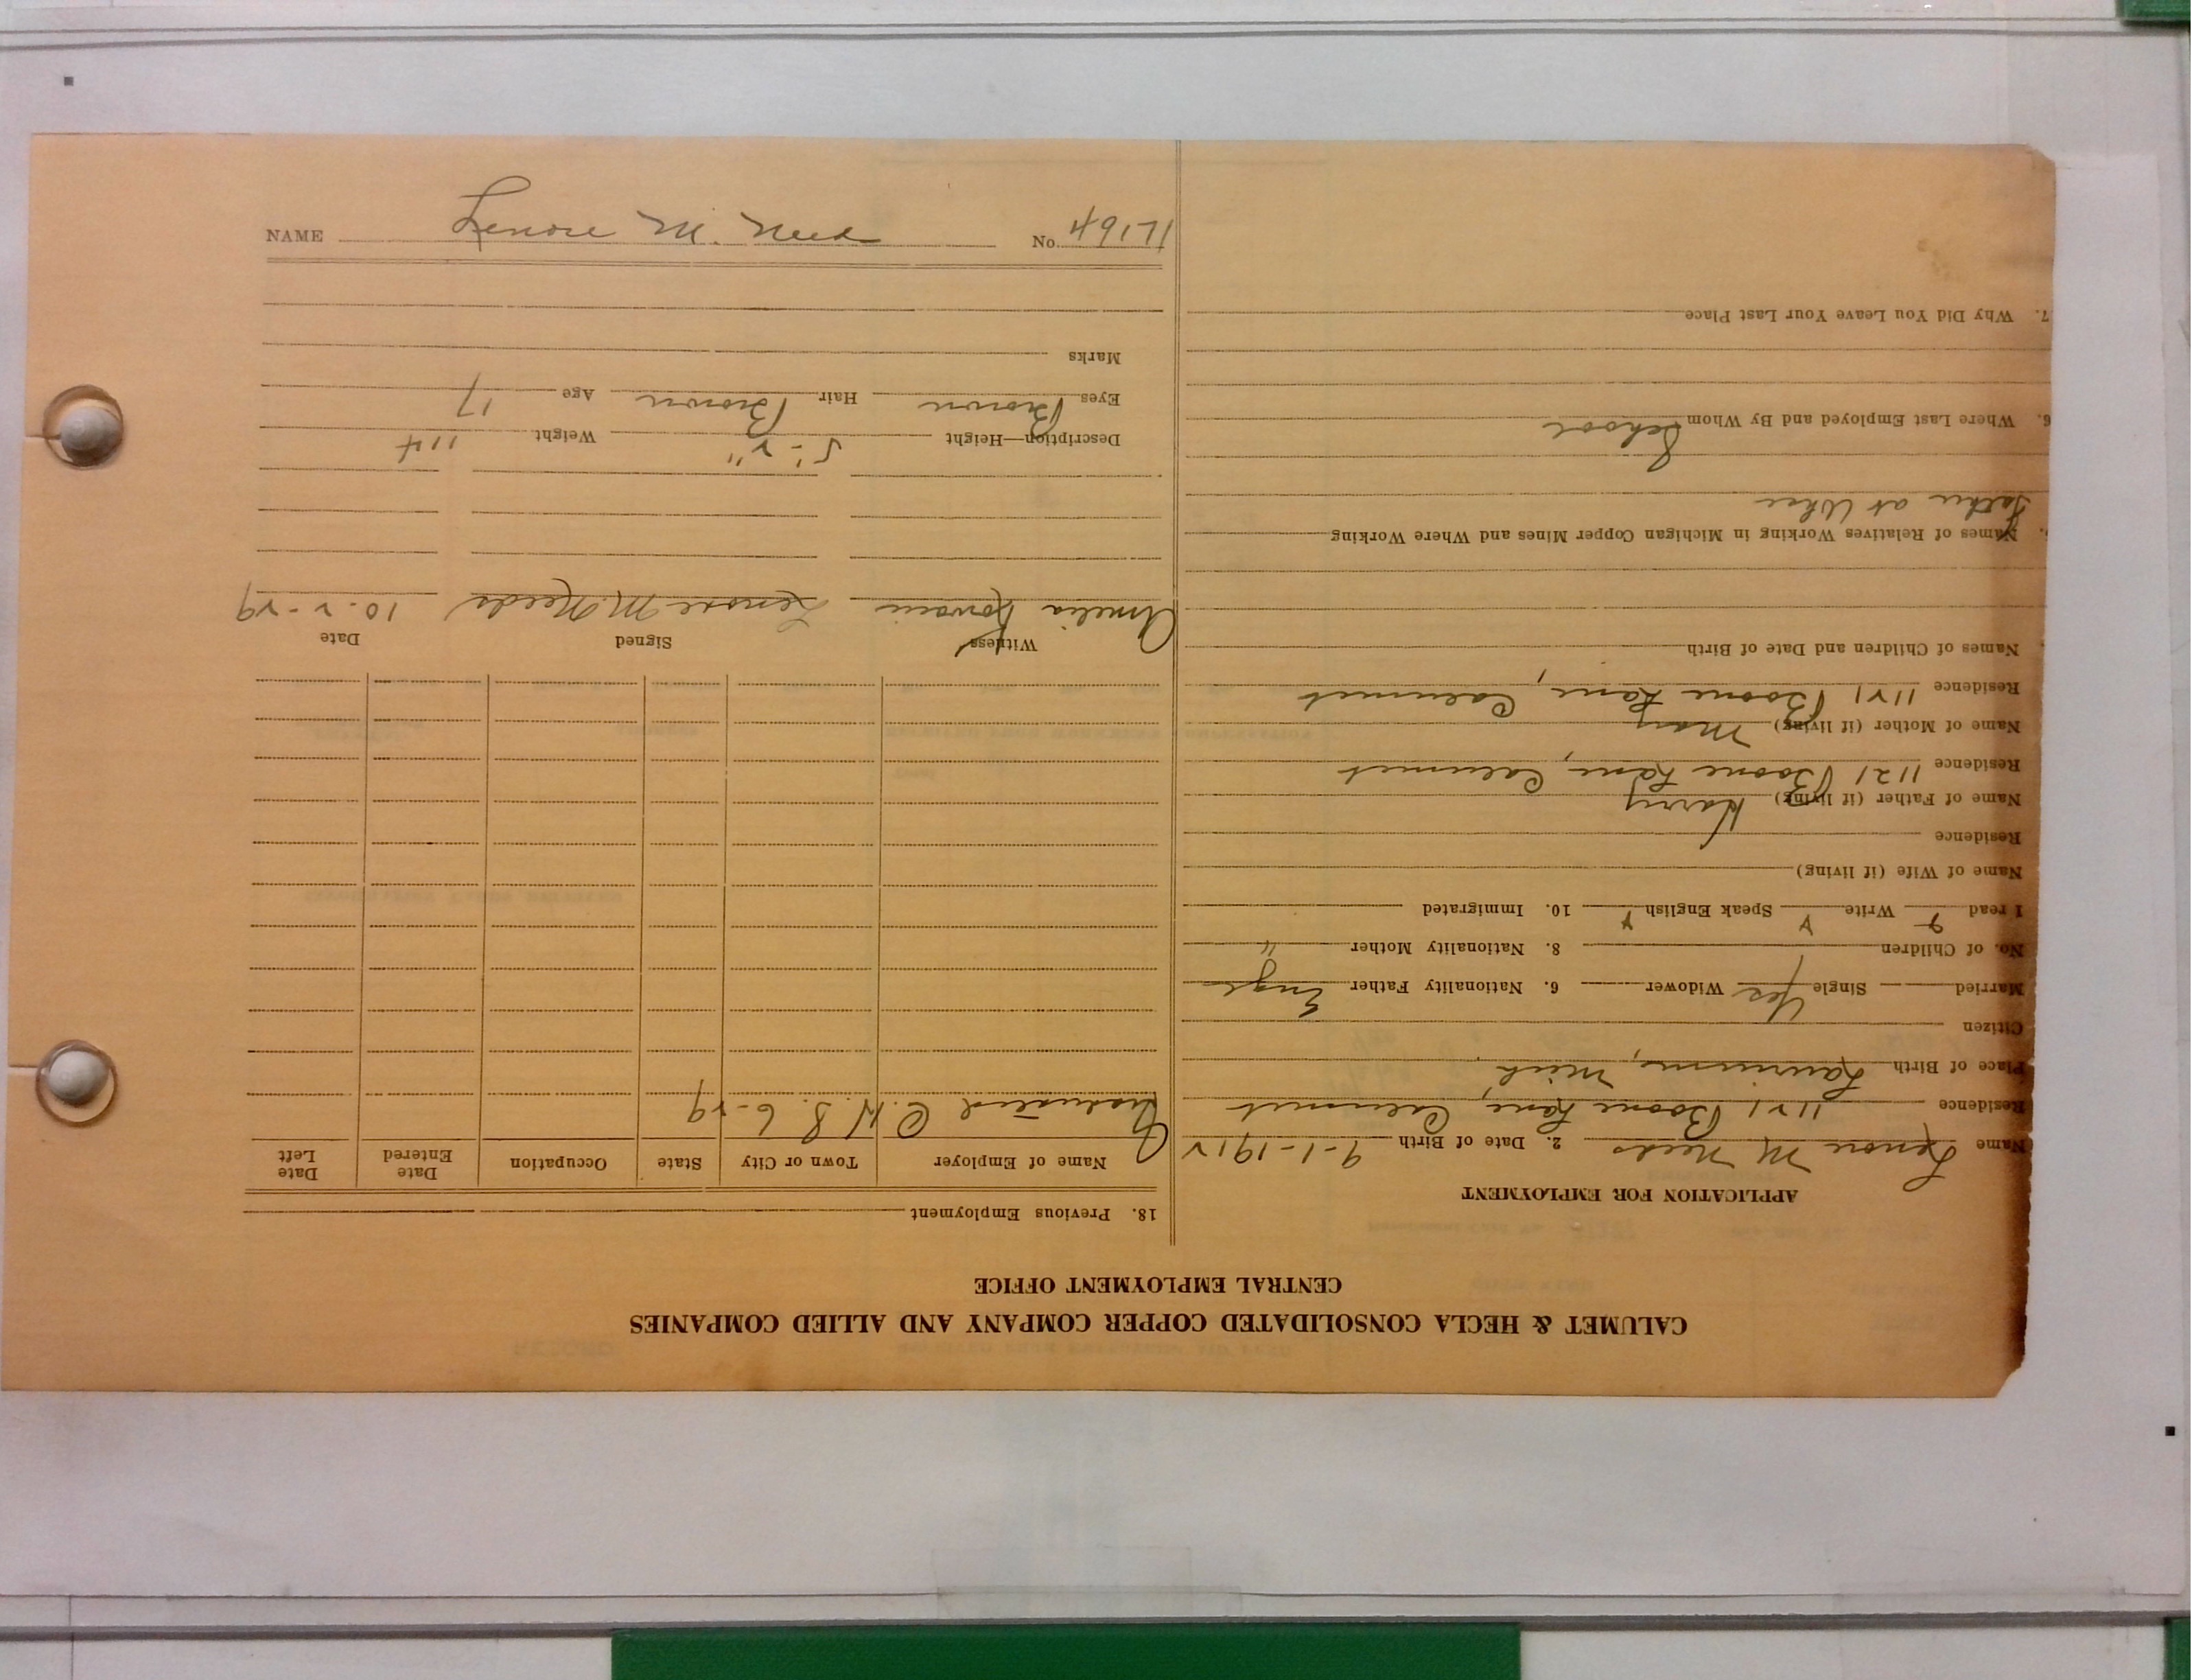 CALUMET & HECLA CONSOLIDATED COPPER COMPANY AND ALLIED COMPANIES
CENTRAL EMPLOYMENT OFFICE
APPLICATION FOR EMPLOYMENT
Name Lenore M Needs 2. Date of Birth 9-1-1912
Residence 1121 Boone Lane, Calumet
Place of Birth Laurium, Mich.
Citizen
Married Single Yes Widower 6. Nationality Father Engl
No. of Children 8. Nationality Mother "
I read y Write y Speak English y 10. Immigrated
Name of Wife (if living)
Residence
Name of Father (if living) Harry
Residence 1121 Boone Lane, Calumet
Name of Mother (if living) Mary
Residence 1121 Boone Lane, Calumet
Names of Children and Date of Birth
Names of Relatives Working in Michigan Copper Mines and Where Working
Father at
6. Where Last Employed and By Whom School
7. Why Did You Leave Your Last Place
18. Previous Employment
Name of Employer Town or City State Occupation Date Entered Date Left
Graduated C. H. S. 6-29
Witness Signed Date
Amelia Lenore M. Needs 10-2-29
Description—Height 5'-2" Weight 114
Eyes Brown Hair Brown Age 17
Marks
NAME Lenore M. Need No. 49171